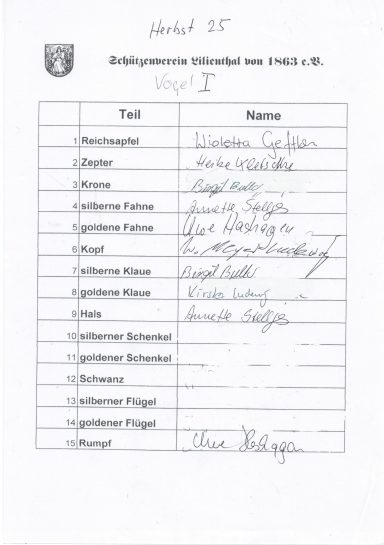 Herbst 25
Schützenverein Lilienthal von 1863 e.V.
Vogel I
Teil Name
1 Reichsapfel Wioletta
2 Zepter Heike
3 Krone Birgit
4 silberne Fahne Annette Stelljes
5 goldene Fahne Uwe Hashagen
6 Kopf W. Meyer
7 silberne Klaue Birgit
8 goldene Klaue Kirsten Ludwig
9 Hals Annette Stelljes
10 silberner Schenkel
11 goldener Schenkel
12 Schwanz
13 silberner Flügel
14 goldener Flügel
15 Rumpf Uwe Hashagen